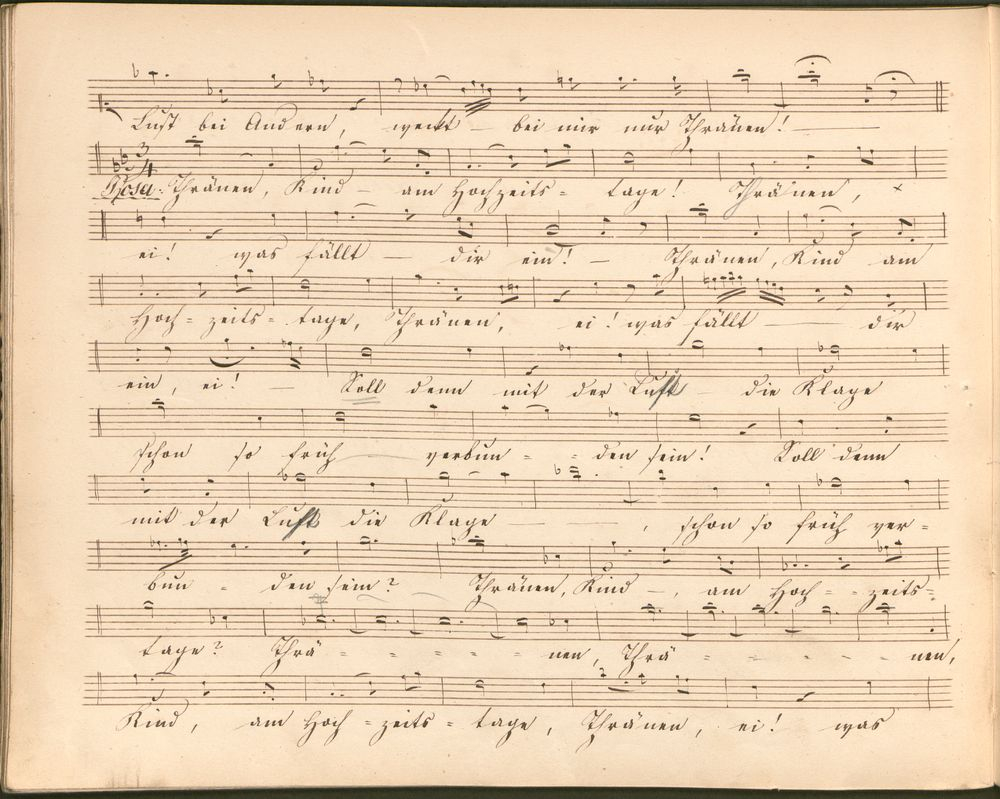 Lust bei Andern, weckt - bei mir nur Thränen! -
3/4
Rosa: Thränen, Kind - am Hochzeits = tage! Thränen, x
ei! was fällt - dir ein! - Thränen, Kind am
Hoch = zeits = tage, Thränen, ei! was fällt - dir
ein, ei! - Soll denn mit der Lust - die Klage
schon so früh - verbun = = den sein! Soll denn
mit der Lust die Klage - -, schon so früh ver =
bun = den sein? Thränen, Kind -, am Hoch = = zeits =
tage? Thrä = = = = = nen, Thrä = = - - - nen,
Kind, am Hoch = zeits = tage, Thränen, ei! was